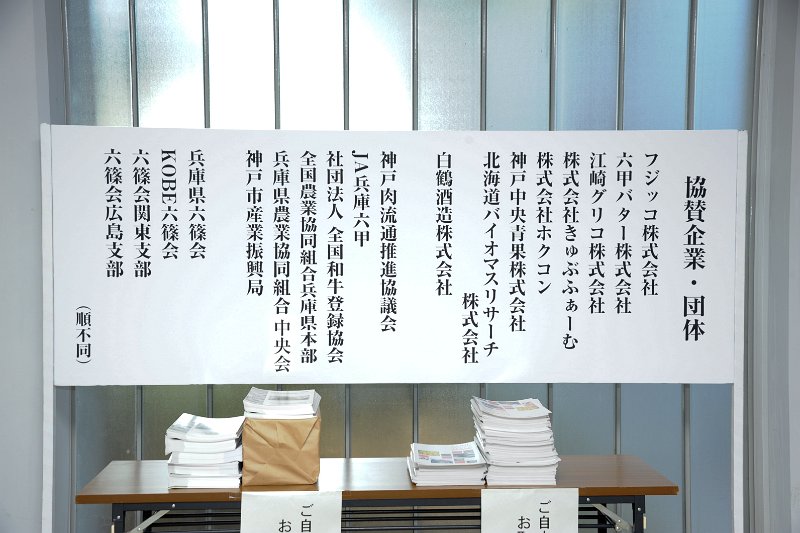 協賛企業・団体
フジッコ株式会社
六甲バター株式会社
江崎グリコ株式会社
株式会社きゅぶふぁーむ
株式会社ホクコン
神戸中央青果株式会社
北海道バイオマスリサーチ
株式会社
白鶴酒造株式会社
神戸肉流通推進協議会
JA兵庫六甲
社団法人 全国和牛登録協会
全国農業協同組合兵庫県本部
兵庫県農業協同組合 中央会
神戸市産業振興局
兵庫県六篠会
KOBE六篠会
六篠会関東支部
六篠会広島支部
（順不同）
ご自
お
ご自
お